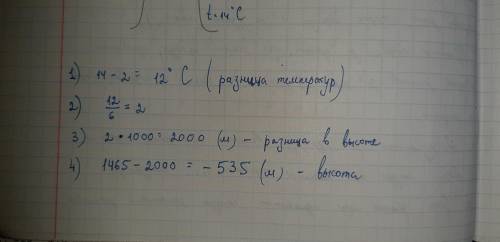 t=14°C
1) 14-2= 12° C (разница температур)
2) 12/6 = 2
3) 2 * 1000 = 2000 (м) - разница в высоте
4) 1465 - 2000 = - 535 (м) - высота